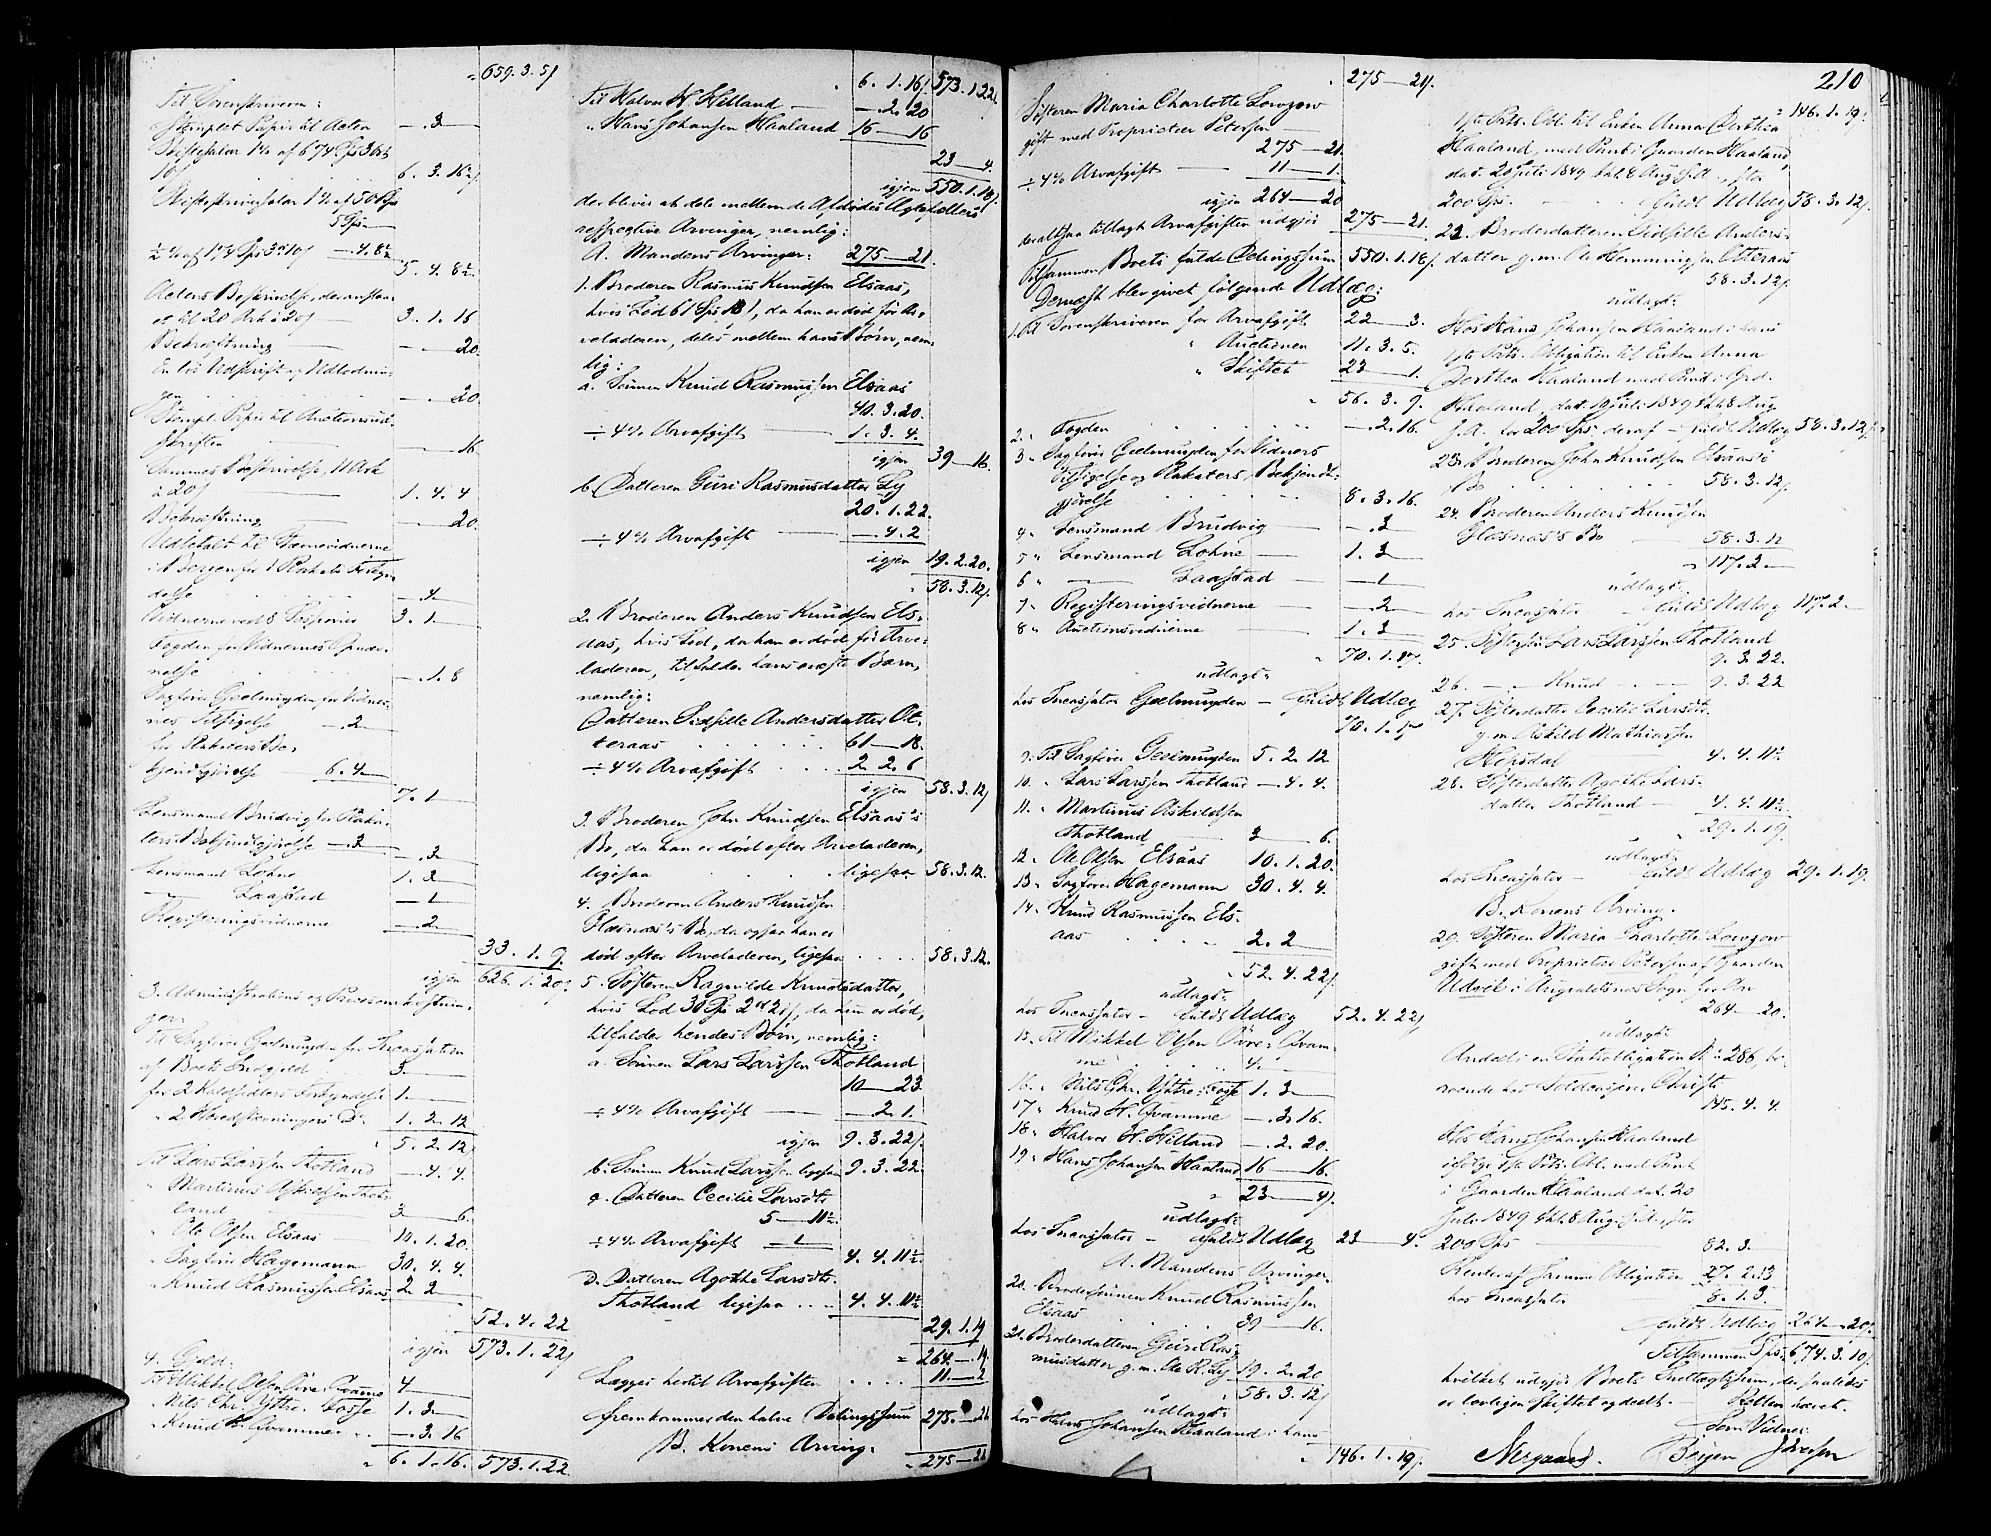 " 659. 3. 5ß
Til Sorenskriveren:
Stemplet Papir til Acten — . 3 —
Skiftesalær 1% af 674 Spd 3 ort
10ß . . . 6. 3. 16½
Skifteskriversalær 1% af 500 Spd
5 Spd. —
½ % af 174 Spd 3 ort 10ß — . 4. 8½
5. 4. 8½
Actens Beskrivelse, der ansláaes
til 20 Ark à 20ß 3. 1. 16
Bekræftning — — . 20.
En løs Udskrift og Udlodnin-
gen — . 20.
Stempl. Papir til Auctionsud-
skriften — — . 16
Sammes Beskrivelse, 11 Ark
à 20ß — 1. 4. 4
Bekræftning — — 20.
Udbetalt til Stævnevidnerne
i Bergen for 1 Plakats Forkyn-
delse — . 4 —
Vidnerne ved 8 3. 1. —
Fogden for Vidnernes Opnæv-
nelse — . 1. 8
Sagfører Geelmuyden for Vidner-
nes Tilsigelse — . 2 —
for Plakaters Be-
kjendtgjørelse — 6. 4 —
7. 1 —
Lensmand Brudvig for Plaka-
ters Bekjendtgjørelse — . 3 —
— . 3 —
Lensmand Lohne 1. 3 —
— Laastad — 1 —
Registeringsvidnerne — . 2 —
33. 1. 9.
igjen 626. 1. 20ß
3. Administrations og Procesomkostnin-
ger:
Til Sagfører Geelmuyden for Incassation
af Boets Indgjeld 3. —
for 2 Forkyndelse 1. —
" 2 D° 1. 2. 12
" 5. 2. 12
Til Lars Larssen Thotland — . 4. 4.
" Martinus Askildsen Thot-
land — 3 — 6.
" Ole Olsen Elsaas — 10. 1. 20.
" Sagfører Hagemann 30. 4. 4.
" Knud Rasmussen Elsaas 2. 2 —
52. 4. 22
igjen 573. 1. 22ß
4. Gjeld:
Til Mikkel Olsen Øvre Qvamme 4 —
" Nils Chr. Yttre-Fosse 1. 3 —
" Knud H. Qvamme . . — . 3. 16
" 6. 1. 16. 573. 1. 22
" 6. 1. 16ß 573. 1. 22ß
Til Halvor H. Hilland — — . 2. 20
" Hans Johansen Haaland 16 — 16
23 — 4.
igjen 550. 1. 18ß
der bliver at dele mellem de Afdødes Ægtefællers
respective Arvinger, nemlig:
A. Mandens Arvinger: 275 — 21.
1. Broderen Rasmus Knudsen Elsaas,
hvis Lod 61 Spd 18ß, da han er død før Ar-
veladeren, deles mellem hans Børn, nem-
lig:
a. Sønnen Knud Rasmussen Elsaas
40. 3. 20.
÷ 4% Arvafgift — 1. 3. 4.
igjen 39 — 16.
b. Datteren Guri Rasmusdatter Ly
20. 1. 22.
÷ 4% Arvafgift — — . 4. 2
igjen 19. 2. 20.
58. 3. 12ß
2. Broderen Anders Knudsen Els-
aas, hvis Lod, da han er død før Arve-
laderen, tilfalder hans eneste Barn,
nemlig:
Datteren Sidselle Andersdatter Ot-
teraas . . . . . . 61 — 18.
÷ 4% Arvafgift . . . 2. 2. 6
igjen 58. 3. 12ß
3. Broderen John Knudsen Elsaas's
Bo, da han er død efter Arveladeren,
ligesaa . . . . ligesaa 58. 3. 12.
4. Broderen Anders Knudsen
Glæsnæs's Bo, da ogsaa han er
død efter Arveladeren, ligesaa . . . . 58. 3. 12.
5. Søsteren Ragnilde Knudsdatter,
hvis Lod 30 Spd 2 ort 21ß, da hun er død,
tilfalder hendes Børn, nemlig:
a. Sønnen Lars Larssen Thotland
10 — 23.
÷ 4% Arvafgift — — 2. 1.
igjen 9. 3. 22ß
b. Sønnen Knud Larssen ligesaa 9. 3. 22.
c. Datteren Cecilie Larsdtr
5 — 11½
÷ 4% Arvafgift — 1 —
4. 4. 11½
d. Datteren Agothe Larsdtr.
Thotland ligesaa . . . 4. 4. 11½
29. 1. 19
" 264 — . 19
Lægges hertil Arvafgiften . . . . 11 — 2
fremkommer den halve Delingssum 275. — 21
B. Konens Arving:
" 275 — 21
" 275 — 21ß
Søsteren Maria Charlotte Lowzow
gift med Proprietær Petersen —
275 — 21.
÷ 4% Arvafgift — 11 — 1.
igjen 264 — 20
hvortil lagt Arvafgiften udgjør 275 — 21.
Tilsammen Boets fulde Delingssum 550. 1. 18ß
Dernæst blev givet følgende Udlæg:
1. Til Sorenskriveren for Arvafgift 22 — 3.
" Auctionen 11. 3. 5.
" Skiftet 23 — 1.
" 56. 3. 9.
2. " Fogden . . . . . — . 2. 16.
3. " Sagfører Geelmuyden for Vidners
Tilsigelse og Plakaters Bekjendt-
gjørelse . . . . . 8. 3. 16.
4. " Lensmand Brudvig — — . 3 —
5. " Lensmand Lohne — 1. 3 —
6. " — Laastad — — 1 —
7. " Registeringsvidnerne — — . 2 —
8. " Auctionsvidnerne — 1. 3 —
" 70. 1. 17.
udlagt:
hos Incassator Geelmuyden — fuldt Udlæg
70. 1. 17
9. Til Sagfører Geelmuyden 5. 2. 12
10. " Lars Larssen Thotland — . 4. 4.
11. " Martinus Askildsen
Thotland 3 — 6.
12. " Ole Olsen Elsaas 10. 1. 20.
13. " Sagfører Hagemann 30. 4. 4.
14. " Knud Rasmussen Els-
aas . . . . 2. 2 —
" 52. 4. 22ß
udlagt:
hos Incassator — fuldt Udlæg 52. 4. 22ß
15. Til Mikkel Olsen Øvre-Qvam-
me . . . . 4. —
16. " Nils Chr. Yttre-Fosse 1. 3 —
17. " Knud H. Qvamme — . 3. 16.
18. " Halvor H. Hilland — . 2. 20.
19. " Hans Johansen Haaland 16 — 16.
" 23 — 4ß
udlagt:
hos Incassator — fuldt Udlæg 23 — 4.
A. Mandens Arvinger.
20. Brodersønnen Knud Rasmussen
Elsaas . . . . 39 — 16.
21. Broderdatteren Guri Ras-
musdatter g. m. Ole R. Ly 19. 2. 20
" 58. 3. 12ß
udlagt:
hos Hans Johansen Haaland i hans
" 146. 1. 19ß
210
" 146. 1. 19ß
1ste Prts. Obl. til Enken Anna Dorthea
Haaland, med Pant i Gaarden Haaland,
dat. 20 Juli 1849 thl. 8 Aug. s. A. , for
200 Spd. — fuldt Udlæg 58. 3. 12ß
22. Broderdatteren Sidselle Anders-
datter g. m. Ole Hemmingsen Otteraas
58. 3. 12ß
udlagt:
Hos Hans Johansen Haaland i hans
1ste Prts. Obligation til Enken Anna
Dorthea Haaland med Pant i Grd.
Haaland, dat. 20 Juli 1849 thl. 8 Aug.
s. A. for 200 Spd deraf — fuldt Udlæg 58. 3. 12ß
23. Broderen John Knudsen Elsaas's
Bo . . . . . 58. 3. 12ß
24. Broderen Anders Knudsen
Glæsnæs's Bo — 58. 3. 12
" 117. 2. —
udlagt:
hos Incassator — fuldt Udlæg 117. 2. —
25. Søstersøn Lars Larssen Thotland
9. 3. 22.
26. — " — Knud — " — 9. 3. 22
27. Søsterdatter Cecilie Larsdtr.
g. m. Askild Mathiassen
Hopsdal 4. 4. 11½
28. Søsterdatter Agothe Lars-
datter Thotland — 4. 4. 11½
" 29. 1. 19.
udlagt:
hos Incassator — fuldt Udlæg 29. 1. 19.
B. Konens Arving.
29. Søsteren Maria Charlotte Lowzow
gift med Proprietær Petersen af Gaarden
Udvik i Augvaldsnæs Sogn for Arv
264 — 20.
udlagt:
Andeel i en Statsobligation N° 286, be-
roende hos
145. 4. 4.
Hos Hans Johansen Haaland
ifølge 1ste Prts. Obl. med Pant
i Gaarden Haaland dat. 20
Juli 1849 thl. 8 Aug. s. A. , for
200 Spd — 82. 3. —
Renter af samme Obligation 27. 2. 13
hos Incassator 8. 1. 3.
fuldt Udlæg 264 — 20ß
Tilsammen Spd. 674. 3. 10ß
hvilket udgjør Boets Indtægtssum, der saaledes
er lovligen skiftet og deelt. — Retten hævet.
Som Vidner:
Nergaard. Børgen Iversen